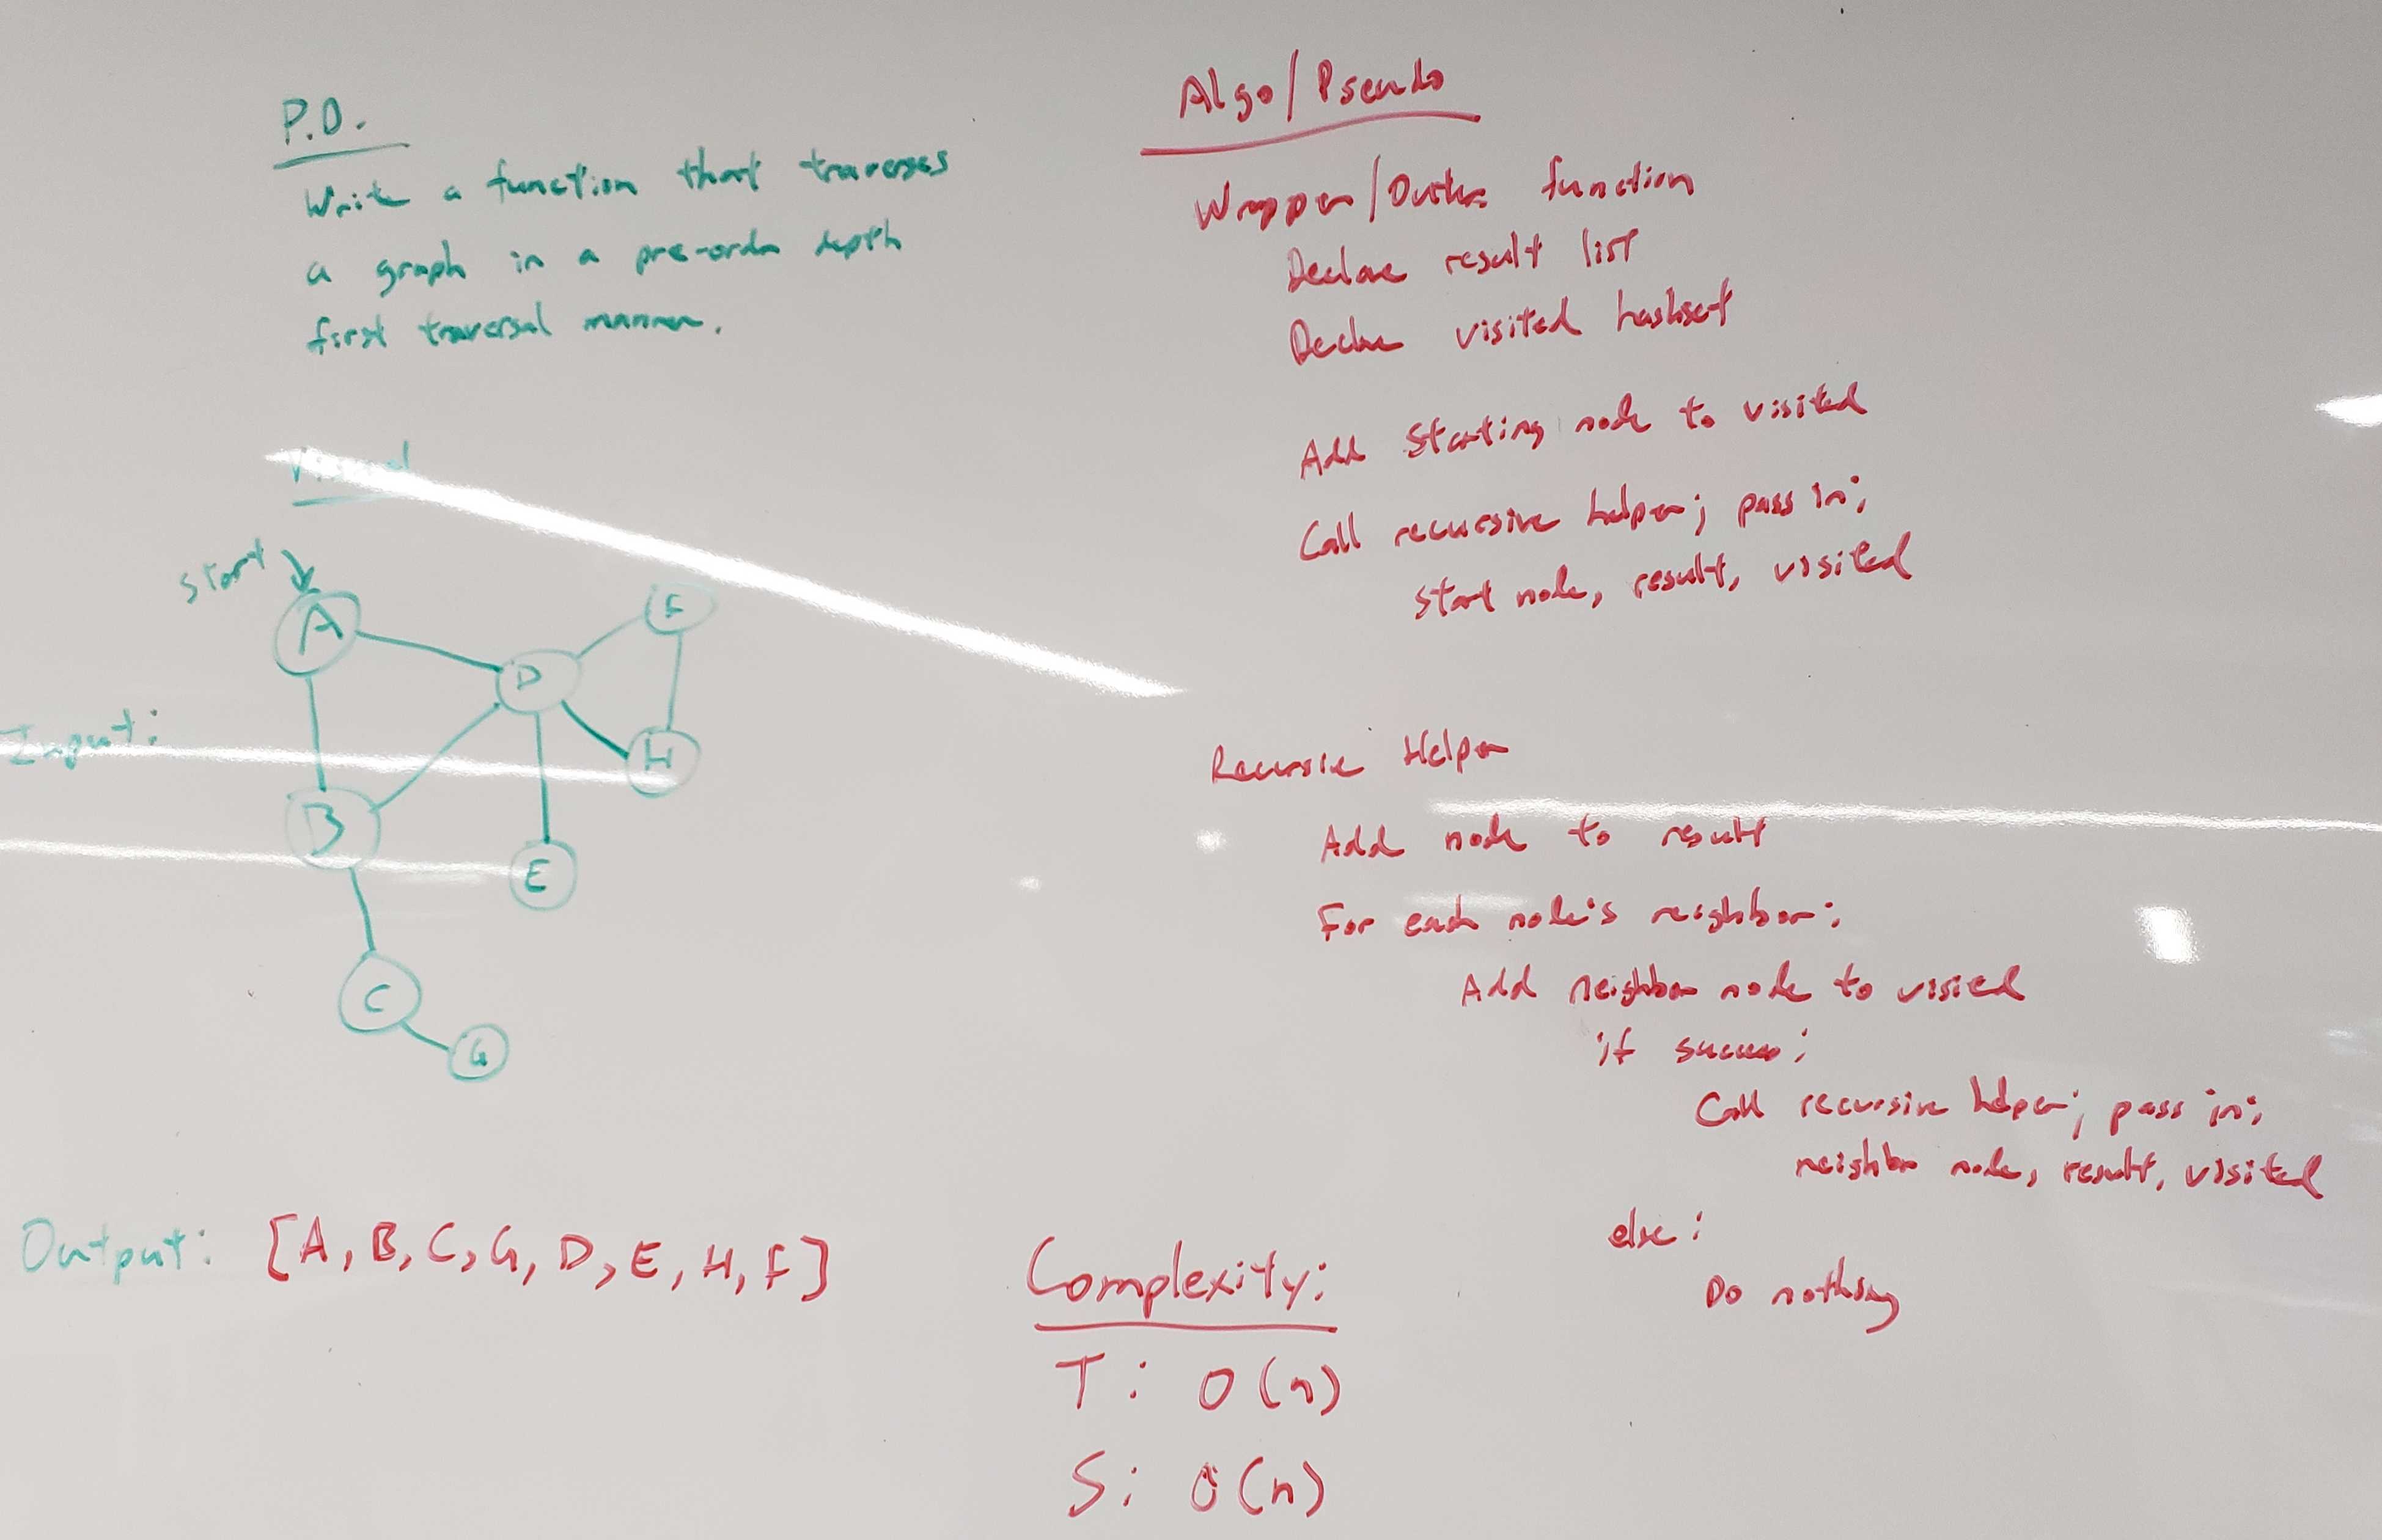 P.D.
Write a function that traverses
a graph in a pre-order depth
first traversal manner.
Visual
Start
A
F
D
Input:
H
B
E
C
G
Output: [A, B, C, G, D, E, H, F]
Algo/Pseudo
Wrapper/Outer function
Declare result list
Declare visited hashset
Add Starting node to visited
Call recursive helper; pass in:
start node, result, visited
Recursive Helper
Add node to result
For each node's neighbor:
Add neighbor node to visited
if success:
Call recursive helper; pass in:
neighbor node, result, visited
else:
Do nothing
Complexity:
T: O(n)
S: O(n)